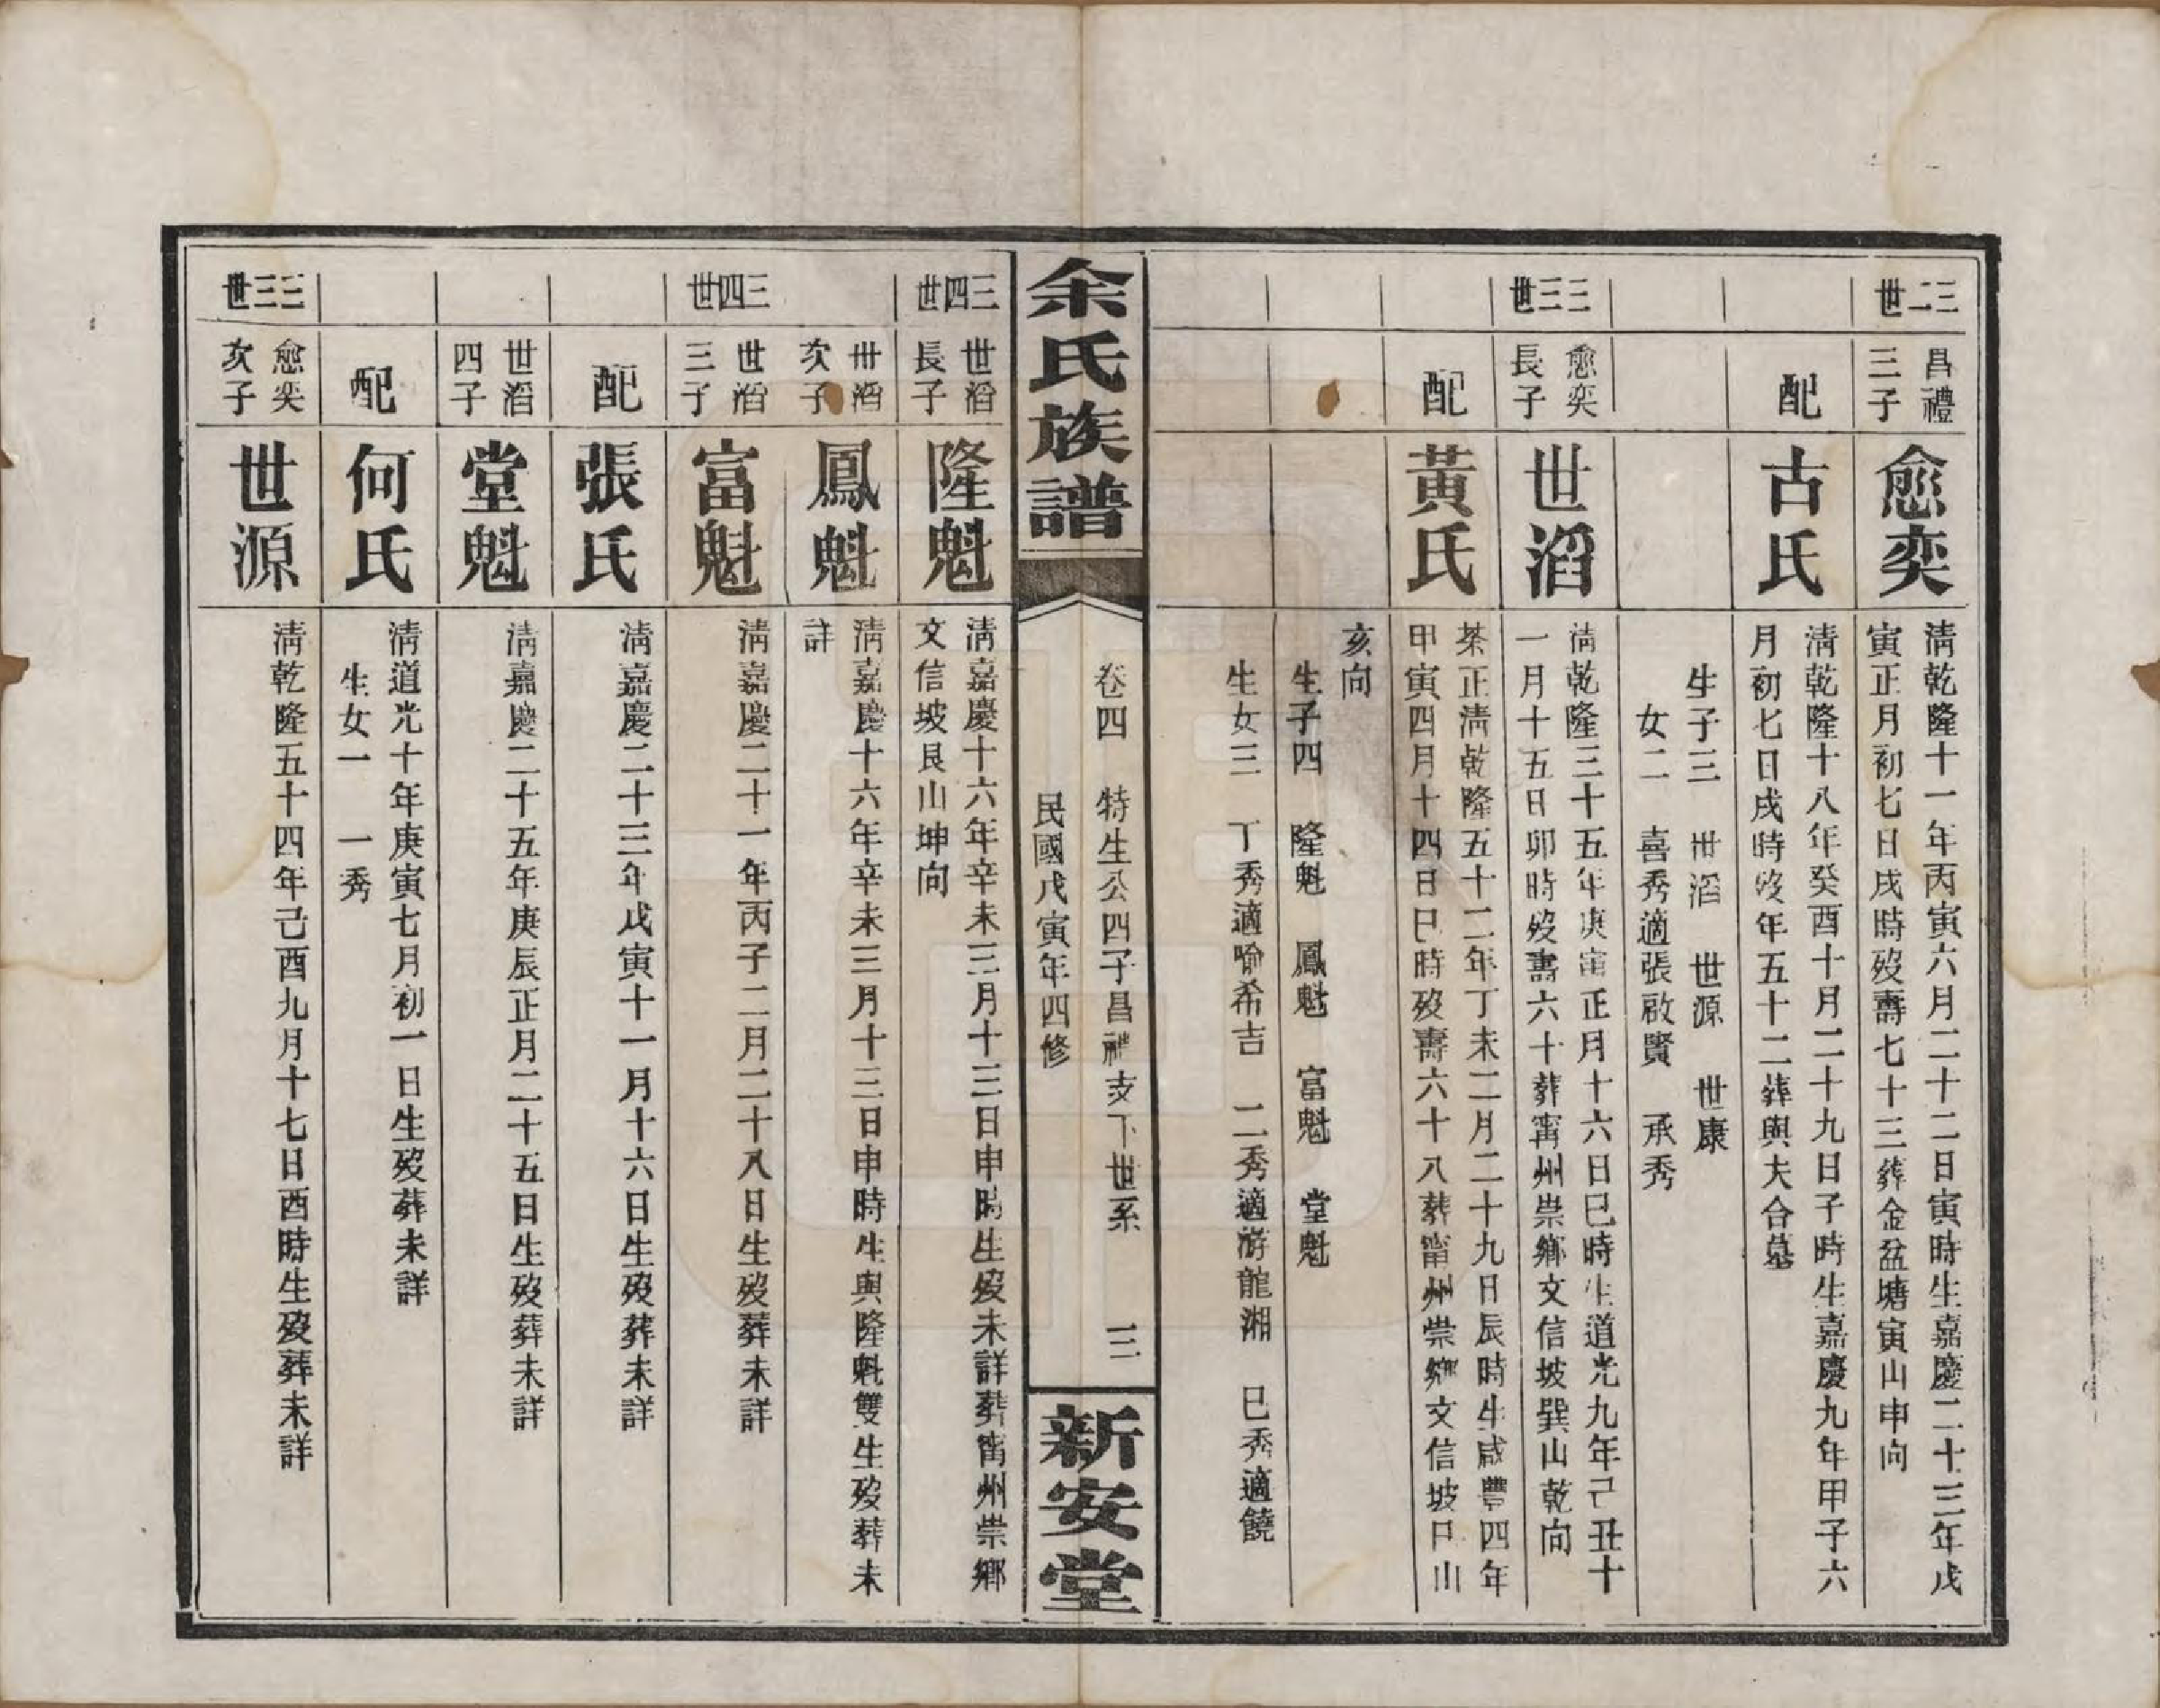 三二世
昌禮三子
愈奕
淸乾隆十一年丙寅六月二十二日寅時生嘉慶二十三年戊
寅正月初七日戌時歿壽七十三葬金盆塘寅山申向
配
古氏
淸乾隆十八年癸酉十月二十九日子時生嘉慶九年甲子六
月初七日戌時歿年五十二葬與夫合墓
生子三　世滔　世源　世康
女二　喜秀適張啟賢　承秀
三三世
愈奕長子
世滔
淸乾隆三十五年庚寅正月十六日巳時生道光九年己丑十
一月十五日卯時歿壽六十葬甯州崇鄉文信坡巽山乾向
配
黃氏
棻正淸乾隆五十二年丁未二月二十九日辰時生咸豐四年
甲寅四月十四日巳時歿壽六十八葬甯州崇鄉文信坡巳山
亥向
生子四　隆魁　鳳魁　富魁　堂魁
生女三　丁秀適喻希吉　二秀適游龍湘　巳秀適饒
余氏族譜
卷四　特生公四子昌禮支下世系　三
民國戊寅年四修
新安堂
三四世
世滔長子
隆魁
淸嘉慶十六年辛未三月十三日申時生歿未詳葬甯州崇鄉
文信坡艮山坤向
世滔次子
鳳魁
淸嘉慶十六年辛未三月十三日申時生與隆魁雙生歿葬未
詳
三四世
世滔三子
富魁
淸嘉慶二十一年丙子二月二十八日生歿葬未詳
配
張氏
淸嘉慶二十三年戊寅十一月十六日生歿葬未詳
世滔四子
堂魁
淸嘉慶二十五年庚辰正月二十五日生歿葬未詳
配
何氏
淸道光十年庚寅七月初一日生歿葬未詳
生女一　一秀
三三世
愈奕次子
世源
淸乾隆五十四年己酉九月十七日酉時生歿葬未詳